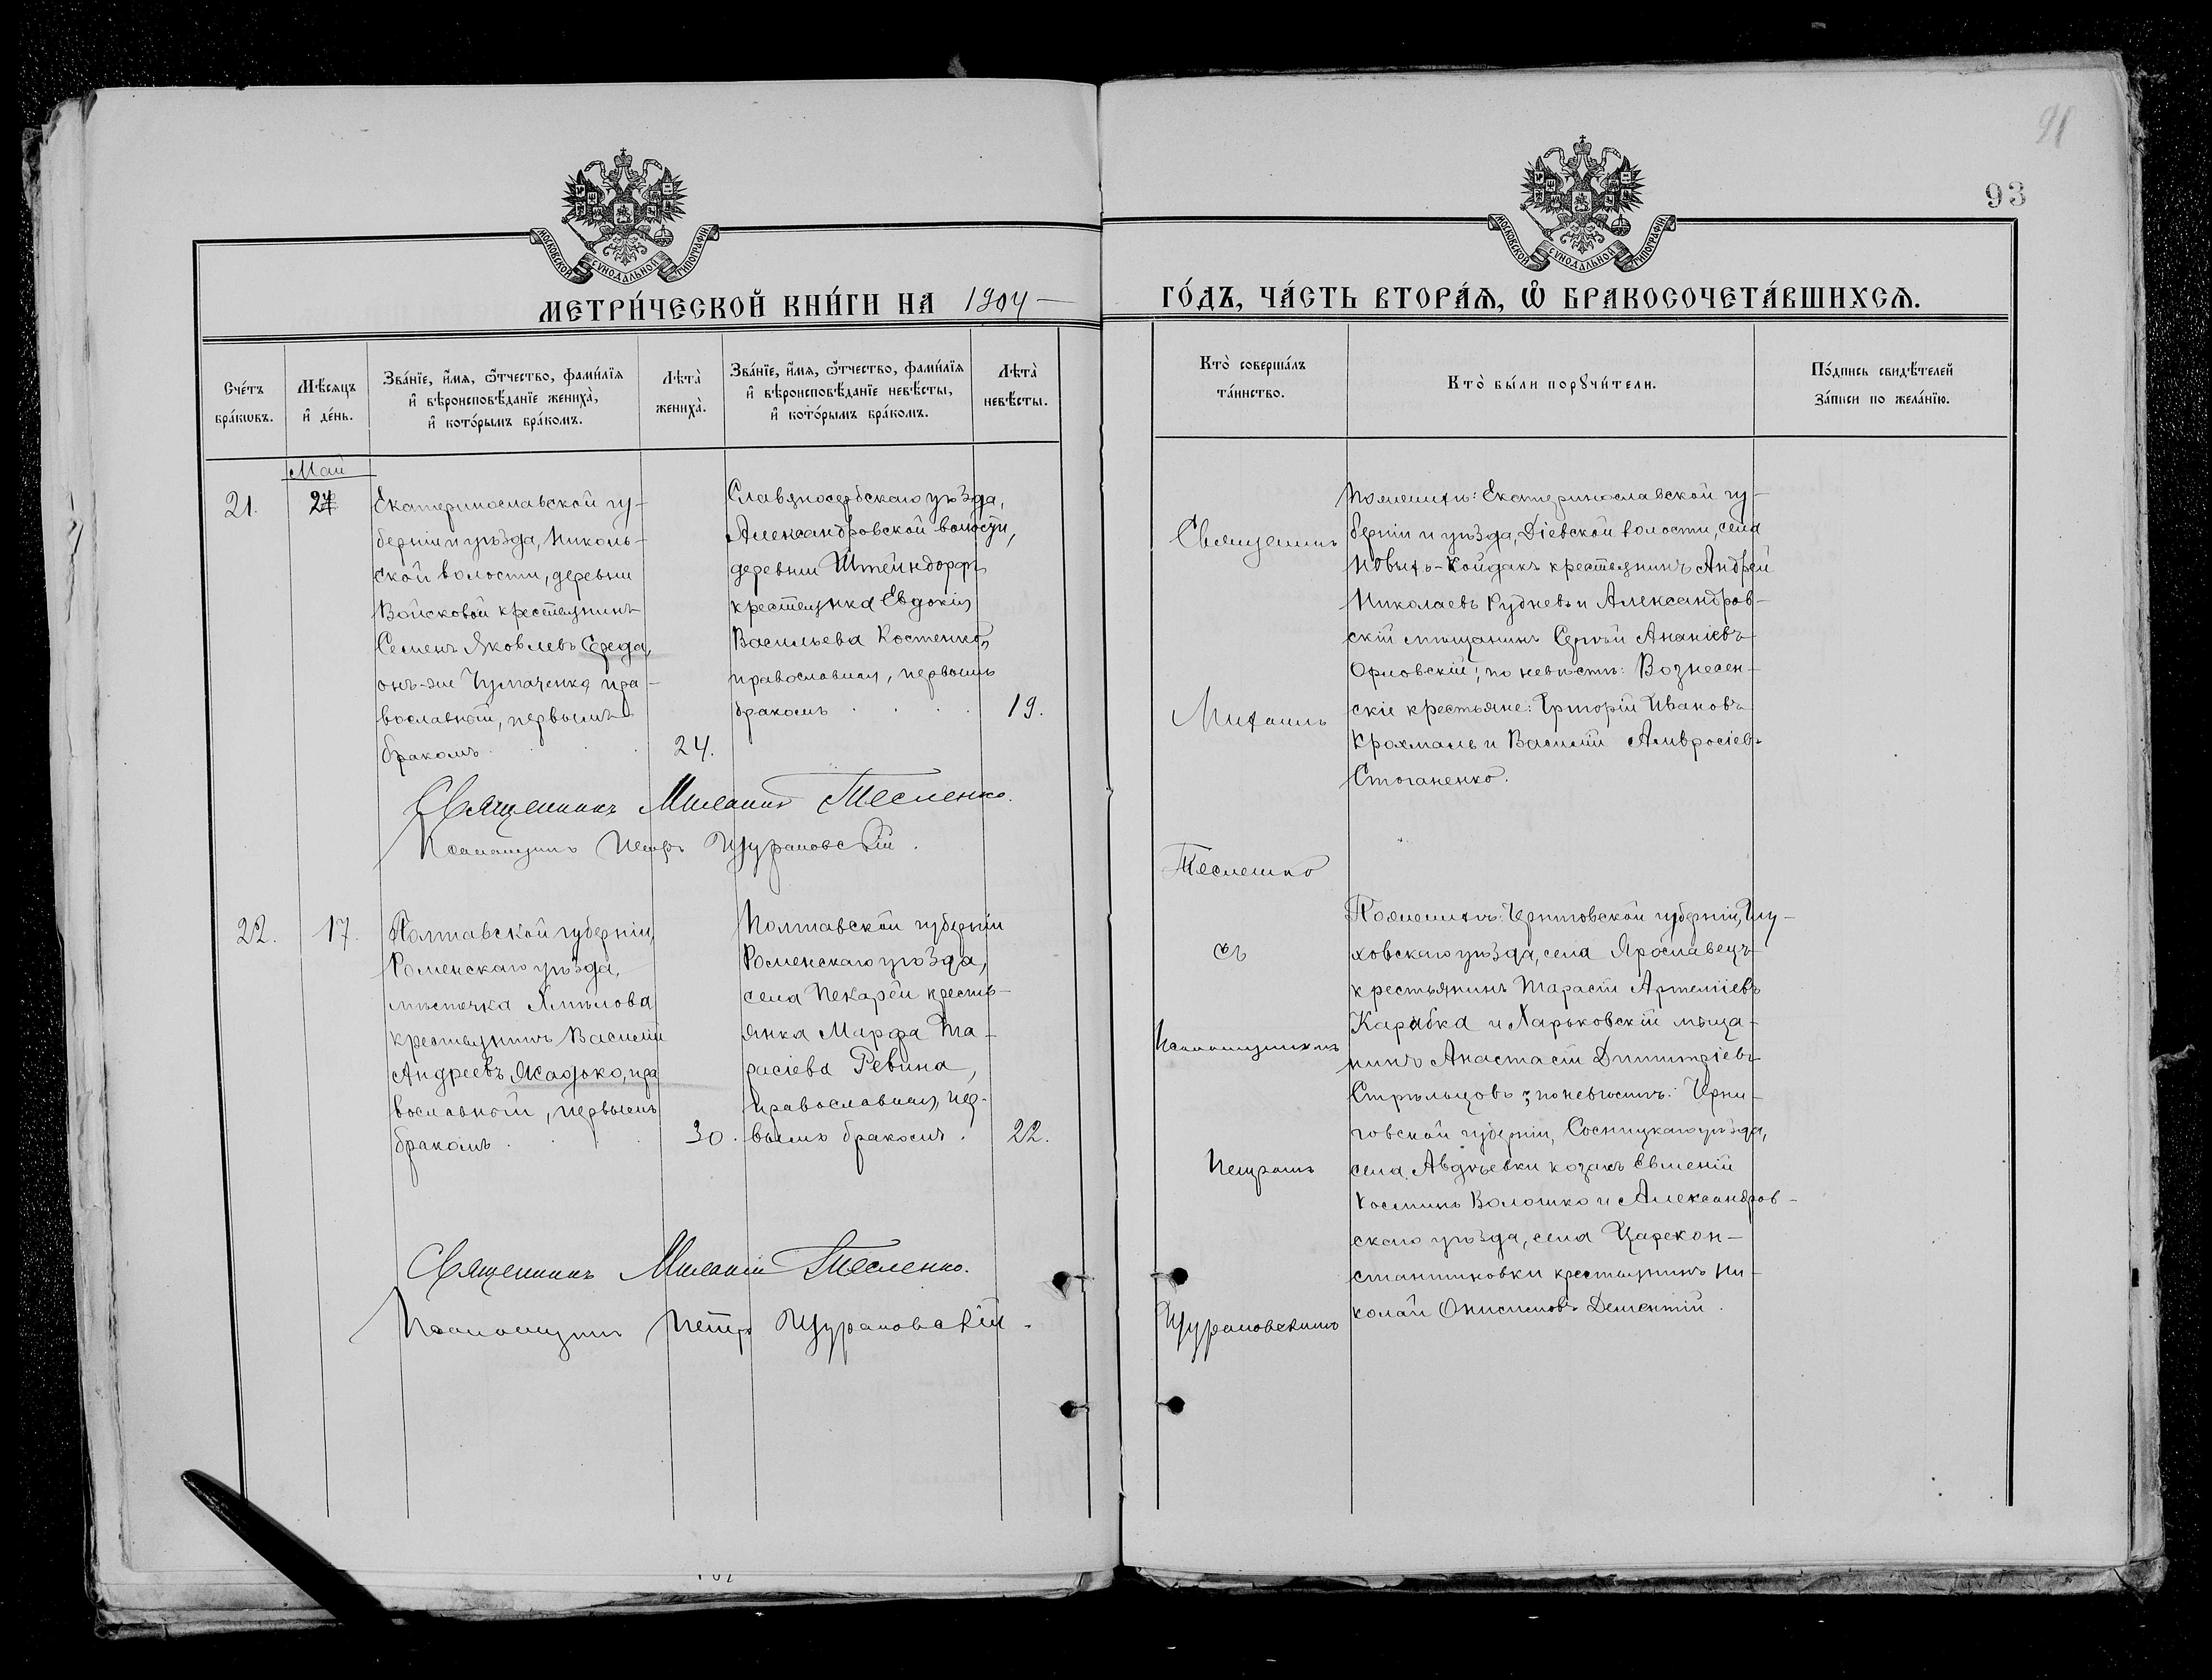 91
93
МОСКОВСКОЙ СѴНОДАЛЬНОЙ ТИПОГРАФІИ
МОСКОВСКОЙ СѴНОДАЛЬНОЙ ТИПОГРАФІИ
МЕТРИ́ЧЕСКОЙ КНИ́ГИ НА 1904
ГО́ДЪ, ЧА́СТЬ ВТОРА́Я, Ѽ БРАКОСОЧЕТА́ВШИХСЯ.
Сче́тъ
бра́кѡвъ.
Мѣ́сяцъ
и҆ де́нь.
Зва́нїе, и҆́мя, ѻ҆́тчество, фами́лїя
и҆ вѣроисповѣ́данїе жениха̀,
и҆ кото́рымъ бра́комъ.
Лѣта̀
жениха̀.
Зва́нїе, и҆́мя, ѻ҆́тчество, фами́лїя
и҆ вѣроисповѣ́данїе невѣ́сты,
и҆ кото́рымъ бра́комъ.
Лѣта̀
невѣ́сты.
Кто̀ соверша́лъ
та́инство.
Кто̀ бы́ли порꙋчи́тели.
По́дпись свидѣ́телей
за́писи по жела́нїю.
Май
21.
Екатеринославской гу-
берніи и уѣзда, Николь-
ской волости, деревни
Войсковой крестьянинъ
Семенъ Яковлевъ Середа,
онъ-же Чумаченко пра-
вославный, первымъ
бракомъ
24.
Славяносербскаго уѣзда,
Александровской волости,
деревни Штейндорфъ
крестьянка Евдокія
Васильева Костенко,
православная, первымъ
бракомъ
19.
Священникъ
Михаилъ
Тесленко
съ
Псаломщикомъ
Петромъ
Щурановскимъ
По женихѣ: Екатеринославской гу-
берніи и уѣзда, Діевской волости, села
Новыхъ-Койдакъ крестьянинъ Андрей
Николаевъ Рудневъ и Александров-
скій мѣщанинъ Сергѣй Ананіевъ
Орловскій; по невѣстѣ: Вознесен-
скіе крестьяне: Григорій Ивановъ
Крохмаль и Василій Амвросіевъ
Стоганенко.
Священникъ Михаилъ Тесленко.
Псаломщикъ Петръ Щурановскій.
22.
17.
Полтавской губерніи,
Роменскаго уѣзда,
мѣстечка
крестьянинъ Василій
Андреевъ пра
вославный, первымъ
бракомъ
30.
Полтавской губерніи
Роменскаго уѣзда,
села Пекарей кресть-
янка Марфа Та-
расіева Ревина,
православная, пер-
вымъ бракомъ.
22.
По женихѣ: Черниговской губерніи, Глу-
ховскаго уѣзда, села Ярославецъ
крестьянинъ Тарасій Артеміевъ
Карабка и Харьковскій мѣща-
нинъ Анастасій Димитріевъ
Стрѣльцовъ; по невѣстѣ: Черни-
говской губерніи, Сосницкаго уѣзда,
села Авдѣевки козакъ Евменій
Косминъ Волошко и Александров-
скаго уѣзда, села Царекон-
стантиновки крестьянинъ Ни-
колай Онисимовъ Дементій.
Священникъ Михаилъ Тесленко.
Псаломщикъ Петръ Щурановскій.